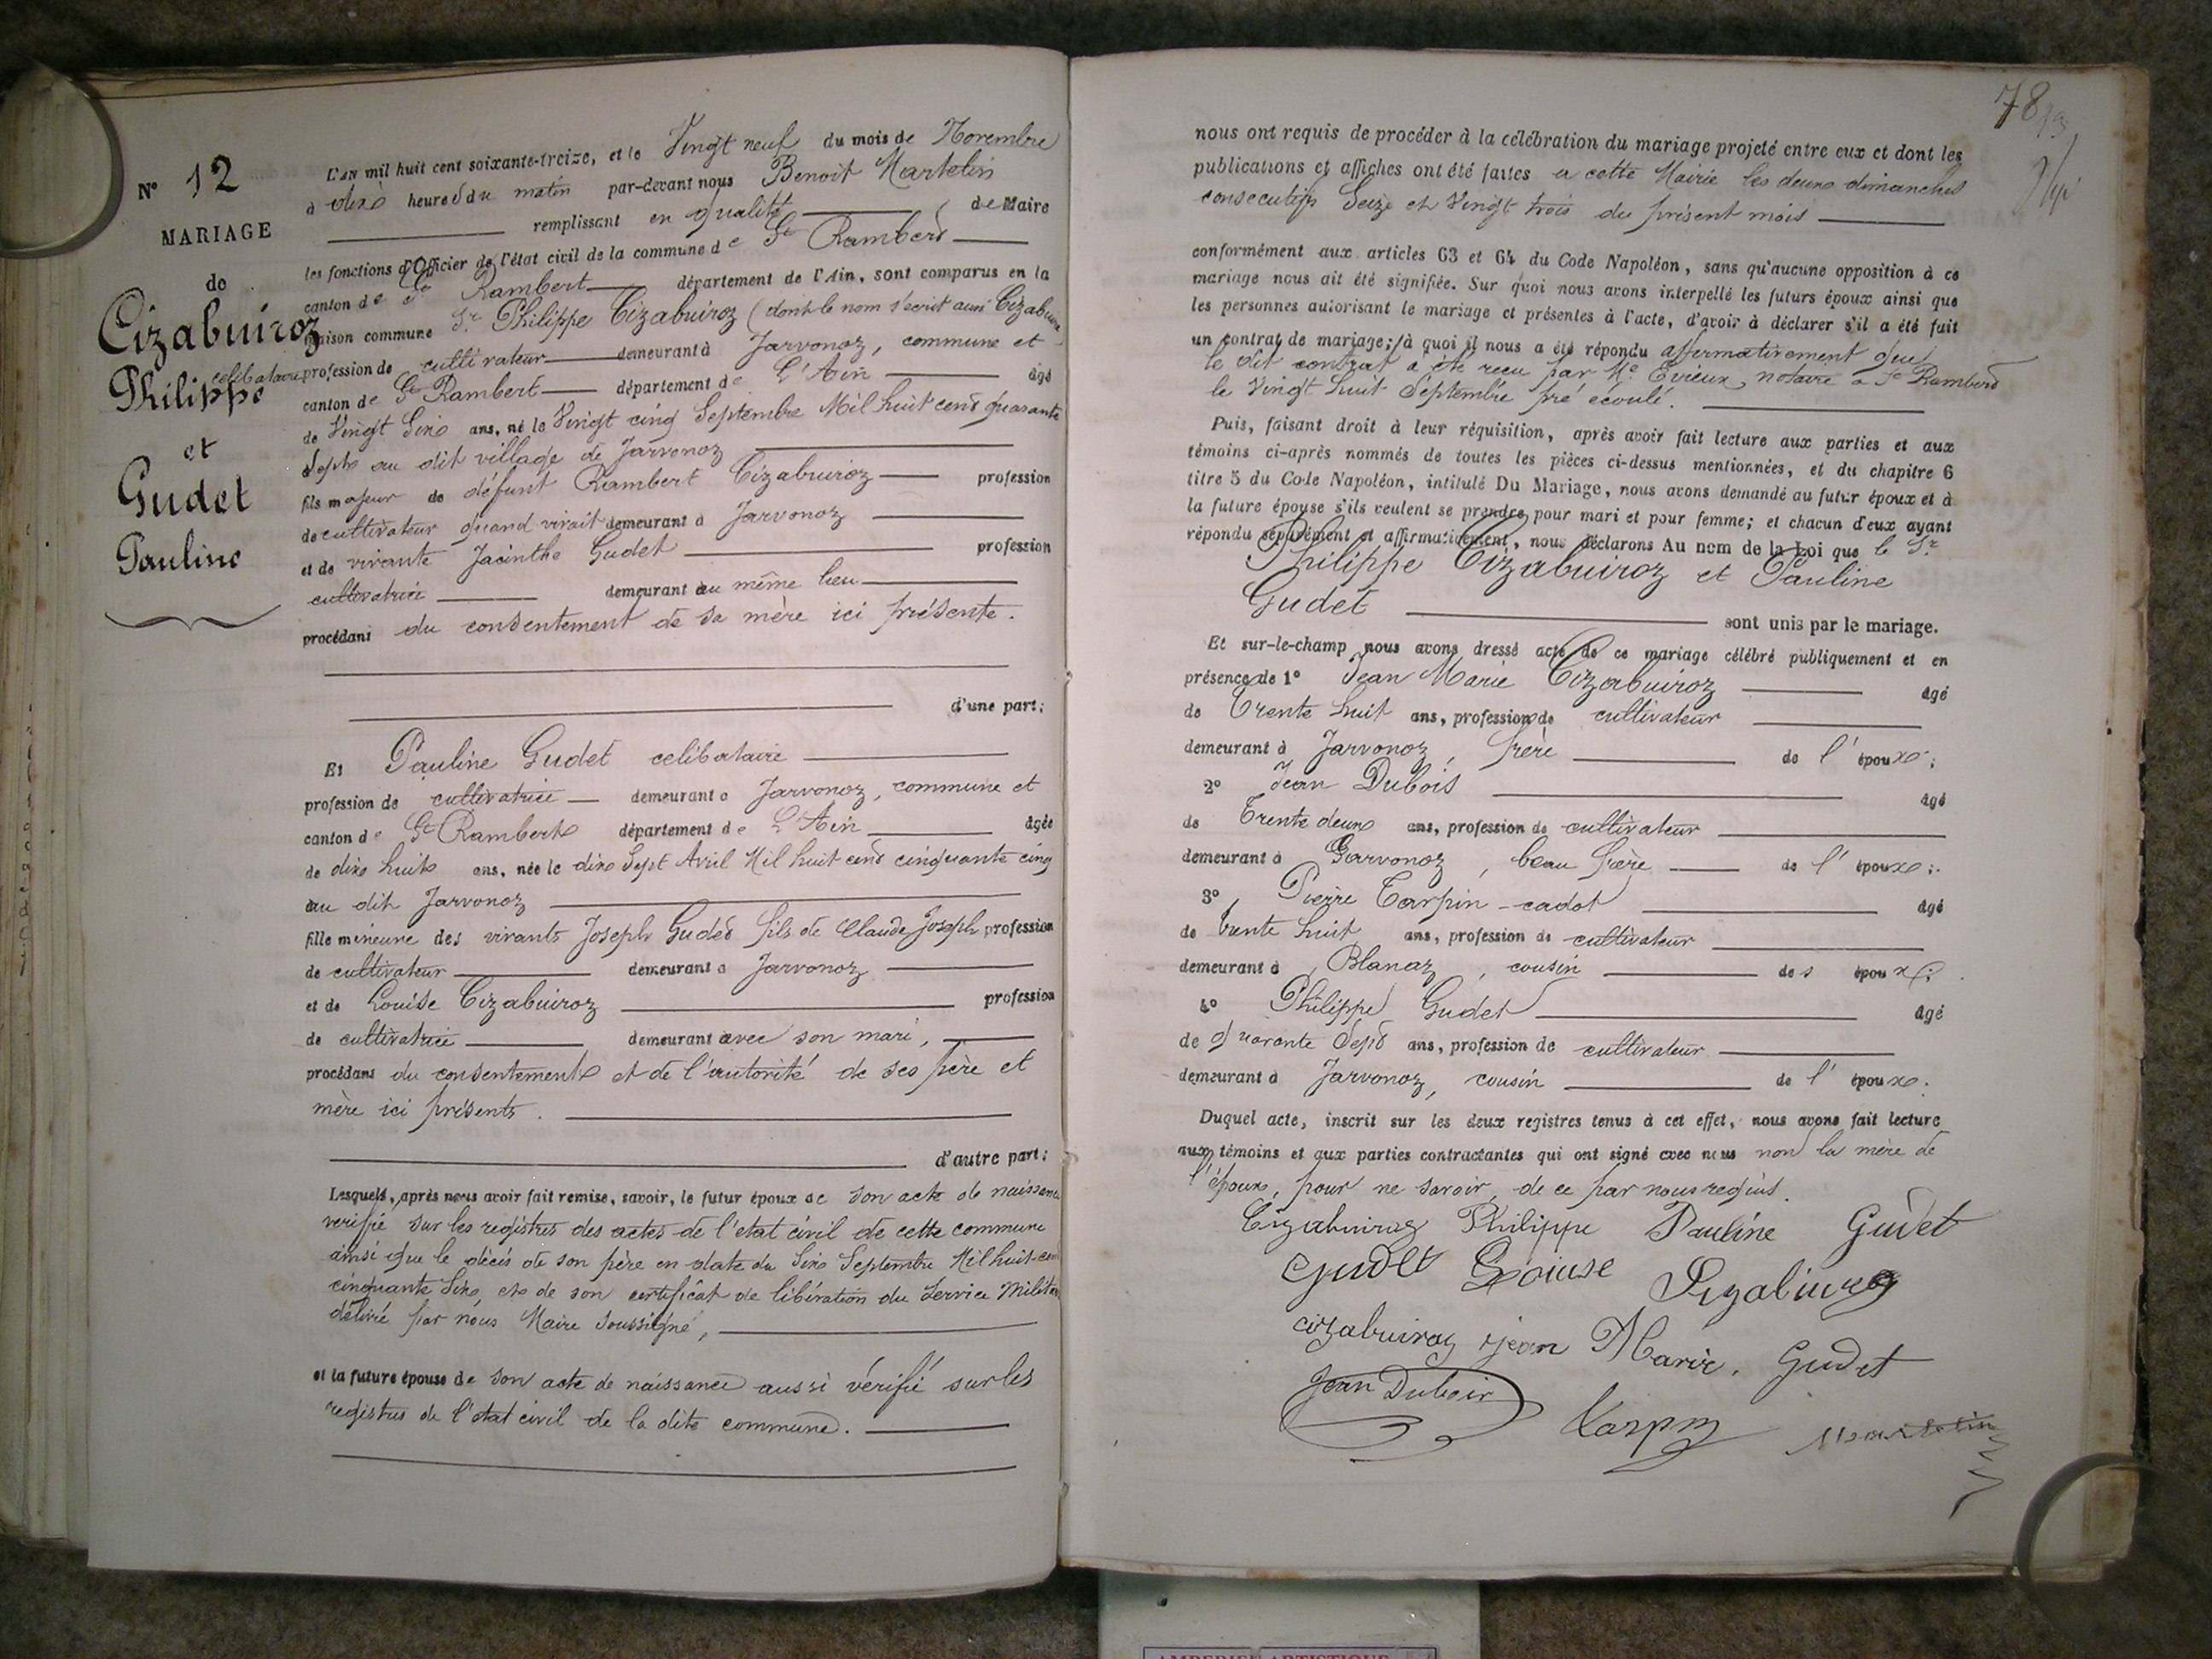 N° 12
MARIAGE
de
Cizabuiroz
Philippe
et
Gudet
Pauline
L'AN mil huit cent soixante-treize, et le Vingt neuf du mois de Novembre
à dixe heures du matin par-devant nous Benoit Martelin
remplissant en qualité de Maire
les fonctions d'Officier de l'état civil de la commune de St Rambert
canton de St Rambert département de l'Ain, sont comparus en la
maison commune Sr Philippe Cizabuiroz (dont le nom s'écrit aussi
celibataire profession de cultivateur demeurant à Jarvonoz, commune et
canton de St Rambert département de L'Ain âgé
de Vingt Six ans, né le Vingt cinq Septembre Mil huit cent quarante
Sept au dit village de Jarvonoz
fils majeur de défunt Rambert Cizabuiroz profession
de cultivateur quand vivait demeurant à Jarvonoz
et de vivante Jacinthe Gudet profession
cultivatrice demeurant au même lieu
procédant du consentement de sa mère ici présente.
d'une part;
Et Pauline Gudet celibataire
profession de cultivatrice demeurant a Jarvonoz, commune et
canton de St Rambert département de L'Ain âgée
de dix huit ans, née le dix Sept Avril Mil huit cent cinquante cinq
au dit Jarvonoz
fille mineure des vivants Joseph Gudet fils de Claude Joseph profession
de cultivateur demeurant a Jarvonoz
et de Louise Cizabuiroz profession
de cultivatrice demeurant avec son mari,
procédant du consentement et de l'autorité de ses père et
mère ici présents.
d'autre part;
Lesquels, après nous avoir fait remise, savoir, le futur époux de son acte de naissance
verifié sur les registres des actes de l'état civil de cette commune
ainsi que le décès de son père en date du Six Septembre Mil huit cent
cinquante Six, et de son certificat de libération du Service Militaire
délivré par nous Maire soussigné,
et la future épouse de son acte de naissance aussi vérifié sur les
registres de l'état civil de la dite commune.
78
nous ont requis de procéder à la célébration du mariage projeté entre eux et dont les
publications et affiches ont été faites a cette Mairie les deux dimanches
consecutifs Seize et Vingt trois du présent mois
conformément aux articles 63 et 64 du Code Napoléon, sans qu'aucune opposition à ce
mariage nous ait été signifiée. Sur quoi nous avons interpellé les futurs époux ainsi que
les personnes autorisant le mariage et présentes à l'acte, d'avoir à déclarer s'il a été fait
un contrat de mariage; à quoi il nous a été répondu affirmativement que
le dit contrat a été reçu par Me Evieux, notaire a St Rambert
le Vingt huit Septembre pré ecoulé.
Puis, faisant droit à leur réquisition, après avoir fait lecture aux parties et aux
témoins ci-après nommés de toutes les pièces ci-dessus mentionnées, et du chapitre 6
titre 5 du Code Napoléon, intitulé Du Mariage, nous avons demandé au futur époux et à
la future épouse s'ils veulent se prendre pour mari et pour femme; et chacun d'eux ayant
répondu séparément et affirmativement, nous déclarons Au nom de la Loi que le Sr
Philippe Cizabuiroz et Pauline
Gudet sont unis par le mariage.
Et sur-le-champ nous avons dressé acte de ce mariage célébré publiquement et en
présence de 1° Jean Marie Cizabuiroz âgé
de Trente huit ans, profession de cultivateur
demeurant à Jarvonoz, frère de l' époux;
2° Jean Dubois âgé
de Trente deux ans, profession de cultivateur
demeurant à Jarvonoz, beau frère de l' époux;
3° Pierre Tarpin-cadot âgé
de trente huit ans, profession de cultivateur
demeurant à Blanaz, cousin des époux;
4° Philippe Gudet âgé
de quarante Sept ans, profession de cultivateur
demeurant à Jarvonoz, cousin de l' époux.
Duquel acte, inscrit sur les deux registres tenus à cet effet, nous avons fait lecture
aux témoins et aux parties contractantes qui ont signé avec nous non la mère de
l'époux, pour ne savoir, de ce par nous requis.
Cizabuiroz Philippe Pauline Gudet
Gudet Louise
Cizabuiroz jean Marie. Gudet
Jean Dubois
Tarpin Martelin